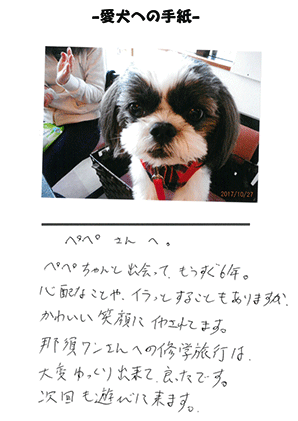 -愛犬への手紙-
2017/10/27
ペペ さん へ。
ペペちゃんと出会って、もうすぐ6年。
心配なことや、イラッとすることもありますが、
かわいい笑顔に やされてます。
那須ワンさんへの修学旅行は、
大変ゆっくり出来て、良ったです。
次回も遊びに来ます。